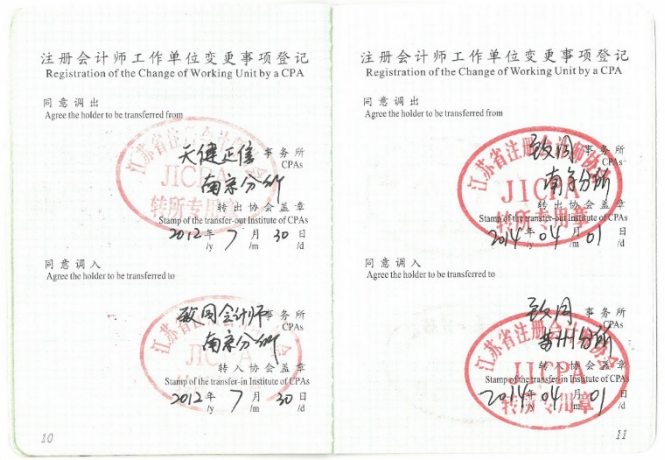 注册会计师工作单位变更事项登记
Registration of the Change of Working Unit by a CPA
同意调出
Agree the holder to be transferred from
天健正信 事务所
CPAs
南京分所
江苏省注册会计师协会
JICPA
转所专用章
转出协会盖章
Stamp of the transfer-out Institute of CPAs
2012年 7月 30日
/y /m /d
同意调入
Agree the holder to be transferred to
致同会计师事务所
CPAs
南京分所
JICPA
转入协会盖章
Stamp of the transfer-in Institute of CPAs
2012年 7月 30日
/y /m /d
10
注册会计师工作单位变更事项登记
Registration of the Change of Working Unit by a CPA
同意调出
Agree the holder to be transferred from
致同 事务所
CPAs
南京分所
江苏省注册会计师协会
JICPA
转所专用章
转出协会盖章
Stamp of the transfer-out Institute of CPAs
2014年 04月 01日
/y /m /d
同意调入
Agree the holder to be transferred to
致同 事务所
CPAs
苏州分所
江苏省注册会计师协会
JICPA
转所专用章
转入协会盖章
Stamp of the transfer-in Institute of CPAs
2014年 04月 01日
/y /m /d
11